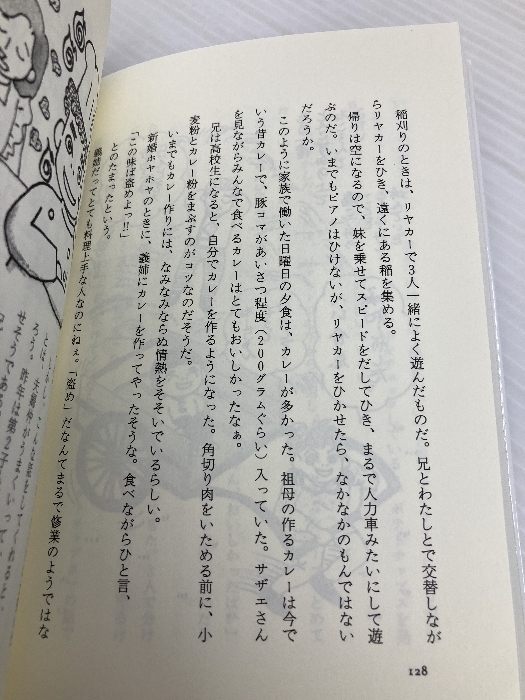 稲刈りのときは、リヤカーで3人一緒によく遊んだものだ。兄とわたしとで交替しなが
らリヤカーをひき、遠くにある稲を集める。
帰りは空になるので、妹を乗せてスピードをだしてひき、まるで人力車みたいにして遊
ぶのだ。いまでもピアノはひけないが、リヤカーをひかせたら、なかなかのもんではない
だろうか。
このように家族で働いた日曜日の夕食は、カレーが多かった。祖母の作るカレーは今で
いう昔カレーで、豚コマがあいさつ程度(200グラムぐらい)入っていた。サザエさん
を見ながらみんなで食べるカレーはとてもおいしかったなぁ。
兄は高校生になると、自分でカレーを作るようになった。角切り肉をいためる前に、小
麦粉とカレー粉をまぶすのがコツなのだそうだ。
いまでもカレー作りには、なみなみならぬ情熱をそそいでいるらしい。
新婚ホヤホヤのときに、義姉にカレーを作ってやったそうな。食べながらひと言、
「この味ば盗めよっ!!」
とのたまったという。
義姉だってとても料理上手な人なのにねぇ。「盗め」だなんてまるで修業のようではな
128